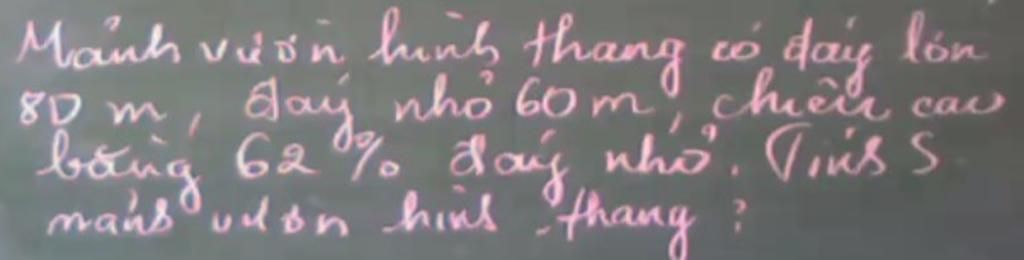 Mảnh vườn hình thang có đáy lớn
80 m, đáy nhỏ 60 m, chiều cao
bằng 62 % đáy nhỏ. Tính S
mảnh vườn hình thang ?